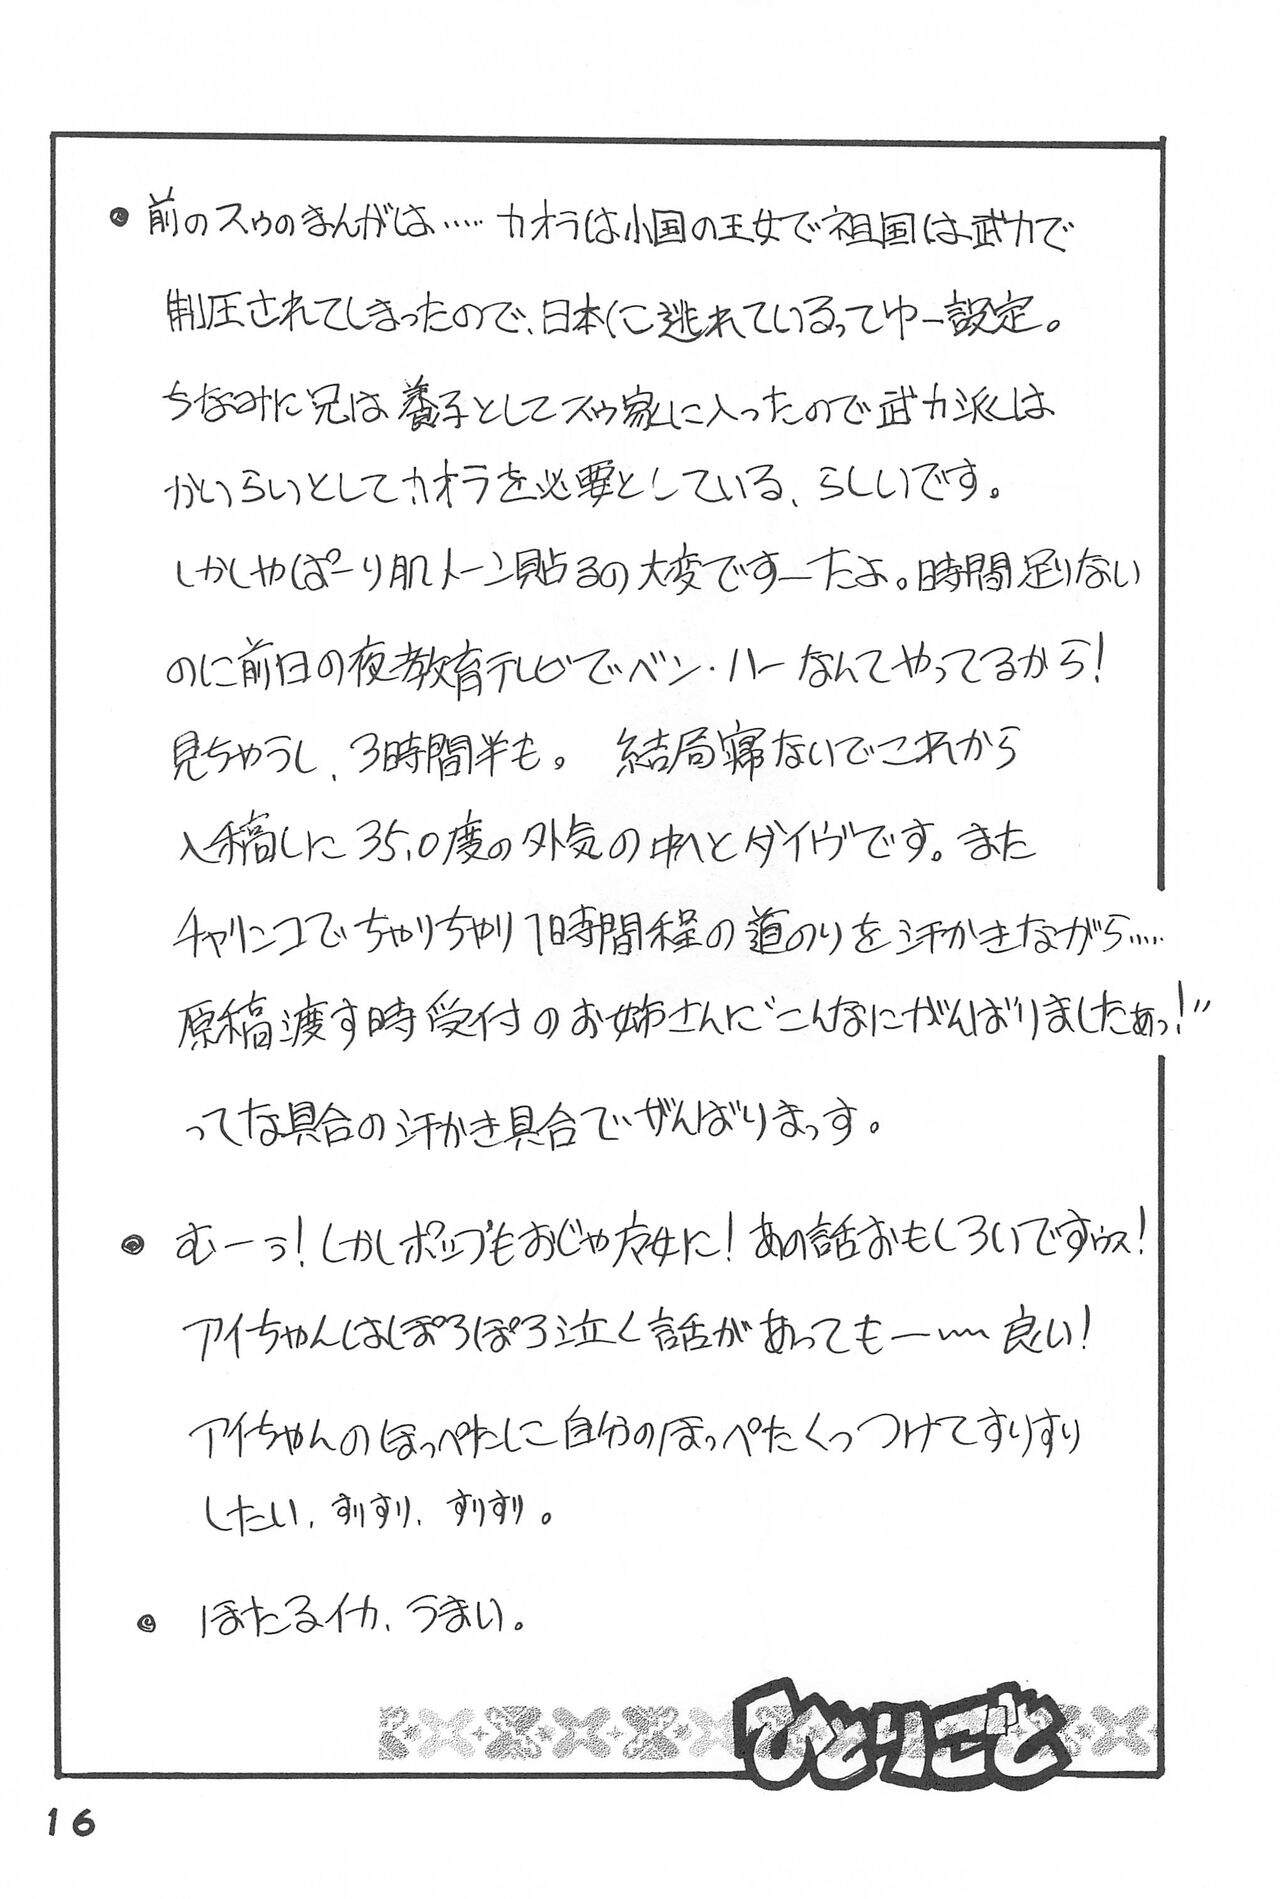 ●前のスゥのまんがは‥‥‥カオラは小国の王女で祖国は武力で
制圧されてしまったので、日本に逃れているってゆー設定。
ちなみに兄は養子としてスゥ家に入ったので武力派は
かいらいとしてカオラを必要としている、らしいです。
しかしやぱーり肌トーン貼るの大変ですーたよ。時間足りない
のに前日の夜教育テレビでベン・ハーなんてやってるから!
見ちゃうし、3時間半も。 結局寝ないでこれから
入稿しに35.0度の外気の中へとダイヴです。また
チャリンコでちゃりちゃり1時間程の道のりを汗かきながら‥‥‥
原稿渡す時受付のお姉さんに〝こんなにがんばりましたぁっ!〟
ってな具合の汗かき具合でがんばりまっす。
●むーっ!しかしポップもおじゃ魔女に!あの話おもしろいですゥス!
アイちゃんはぽろぽろ泣く話があってもー〰良い!
アイちゃんのほっぺたに自分のほっぺたくっつけてすりすり
したい、すりすり、すりすり。
●ほたるイカ、うまい。
ひとりごと
16